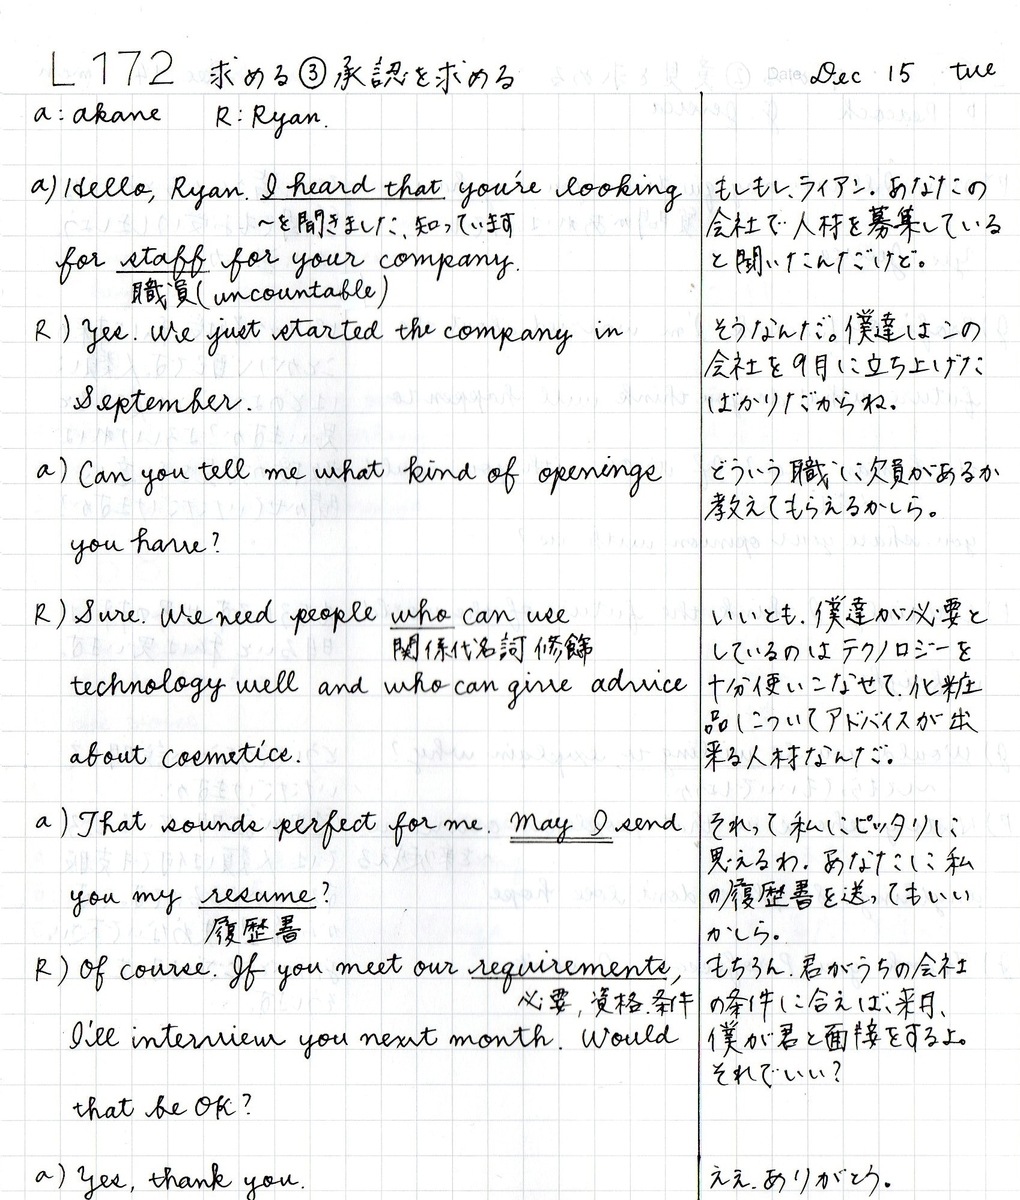 L172 求める③承認を求める Date Dec 15 tue
a: akane R: Ryan.
a) Hello, Ryan. I heard that you're looking
〜を聞きました、知っています
for staff for your company.
職員(uncountable)
もしもし、ライアン。あなたの
会社で人材を募集している
と聞いたんだけど。
R) Yes. We just started the company in
September.
そうなんだ。僕達はこの
会社を9月に立ち上げた
ばかりだからね。
a) Can you tell me what kind of openings
you have?
どういう職に欠員があるか
教えてもらえるかしら。
R) Sure. We need people who can use
関係代名詞 修飾
technology well and who can give advice
about cosmetics.
いいとも、僕達が必要と
しているのはテクノロジーを
十分使いこなせて、化粧
品についてアドバイスが出
来る人材なんだ。
a) That sounds perfect for me. May I send
you my resume?
履歴書
それって私にピッタリに
思えるわ。あなたに私
の履歴書を送ってもいい
かしら。
R) Of course. If you meet our requirements,
必要, 資格、条件
I'll interview you next month. Would
that be OK?
もちろん、君がうちの会社
の条件に合えば、来月、
僕が君と面接をするよ。
それでいい?
a) Yes, thank you.
ええ、ありがとう。